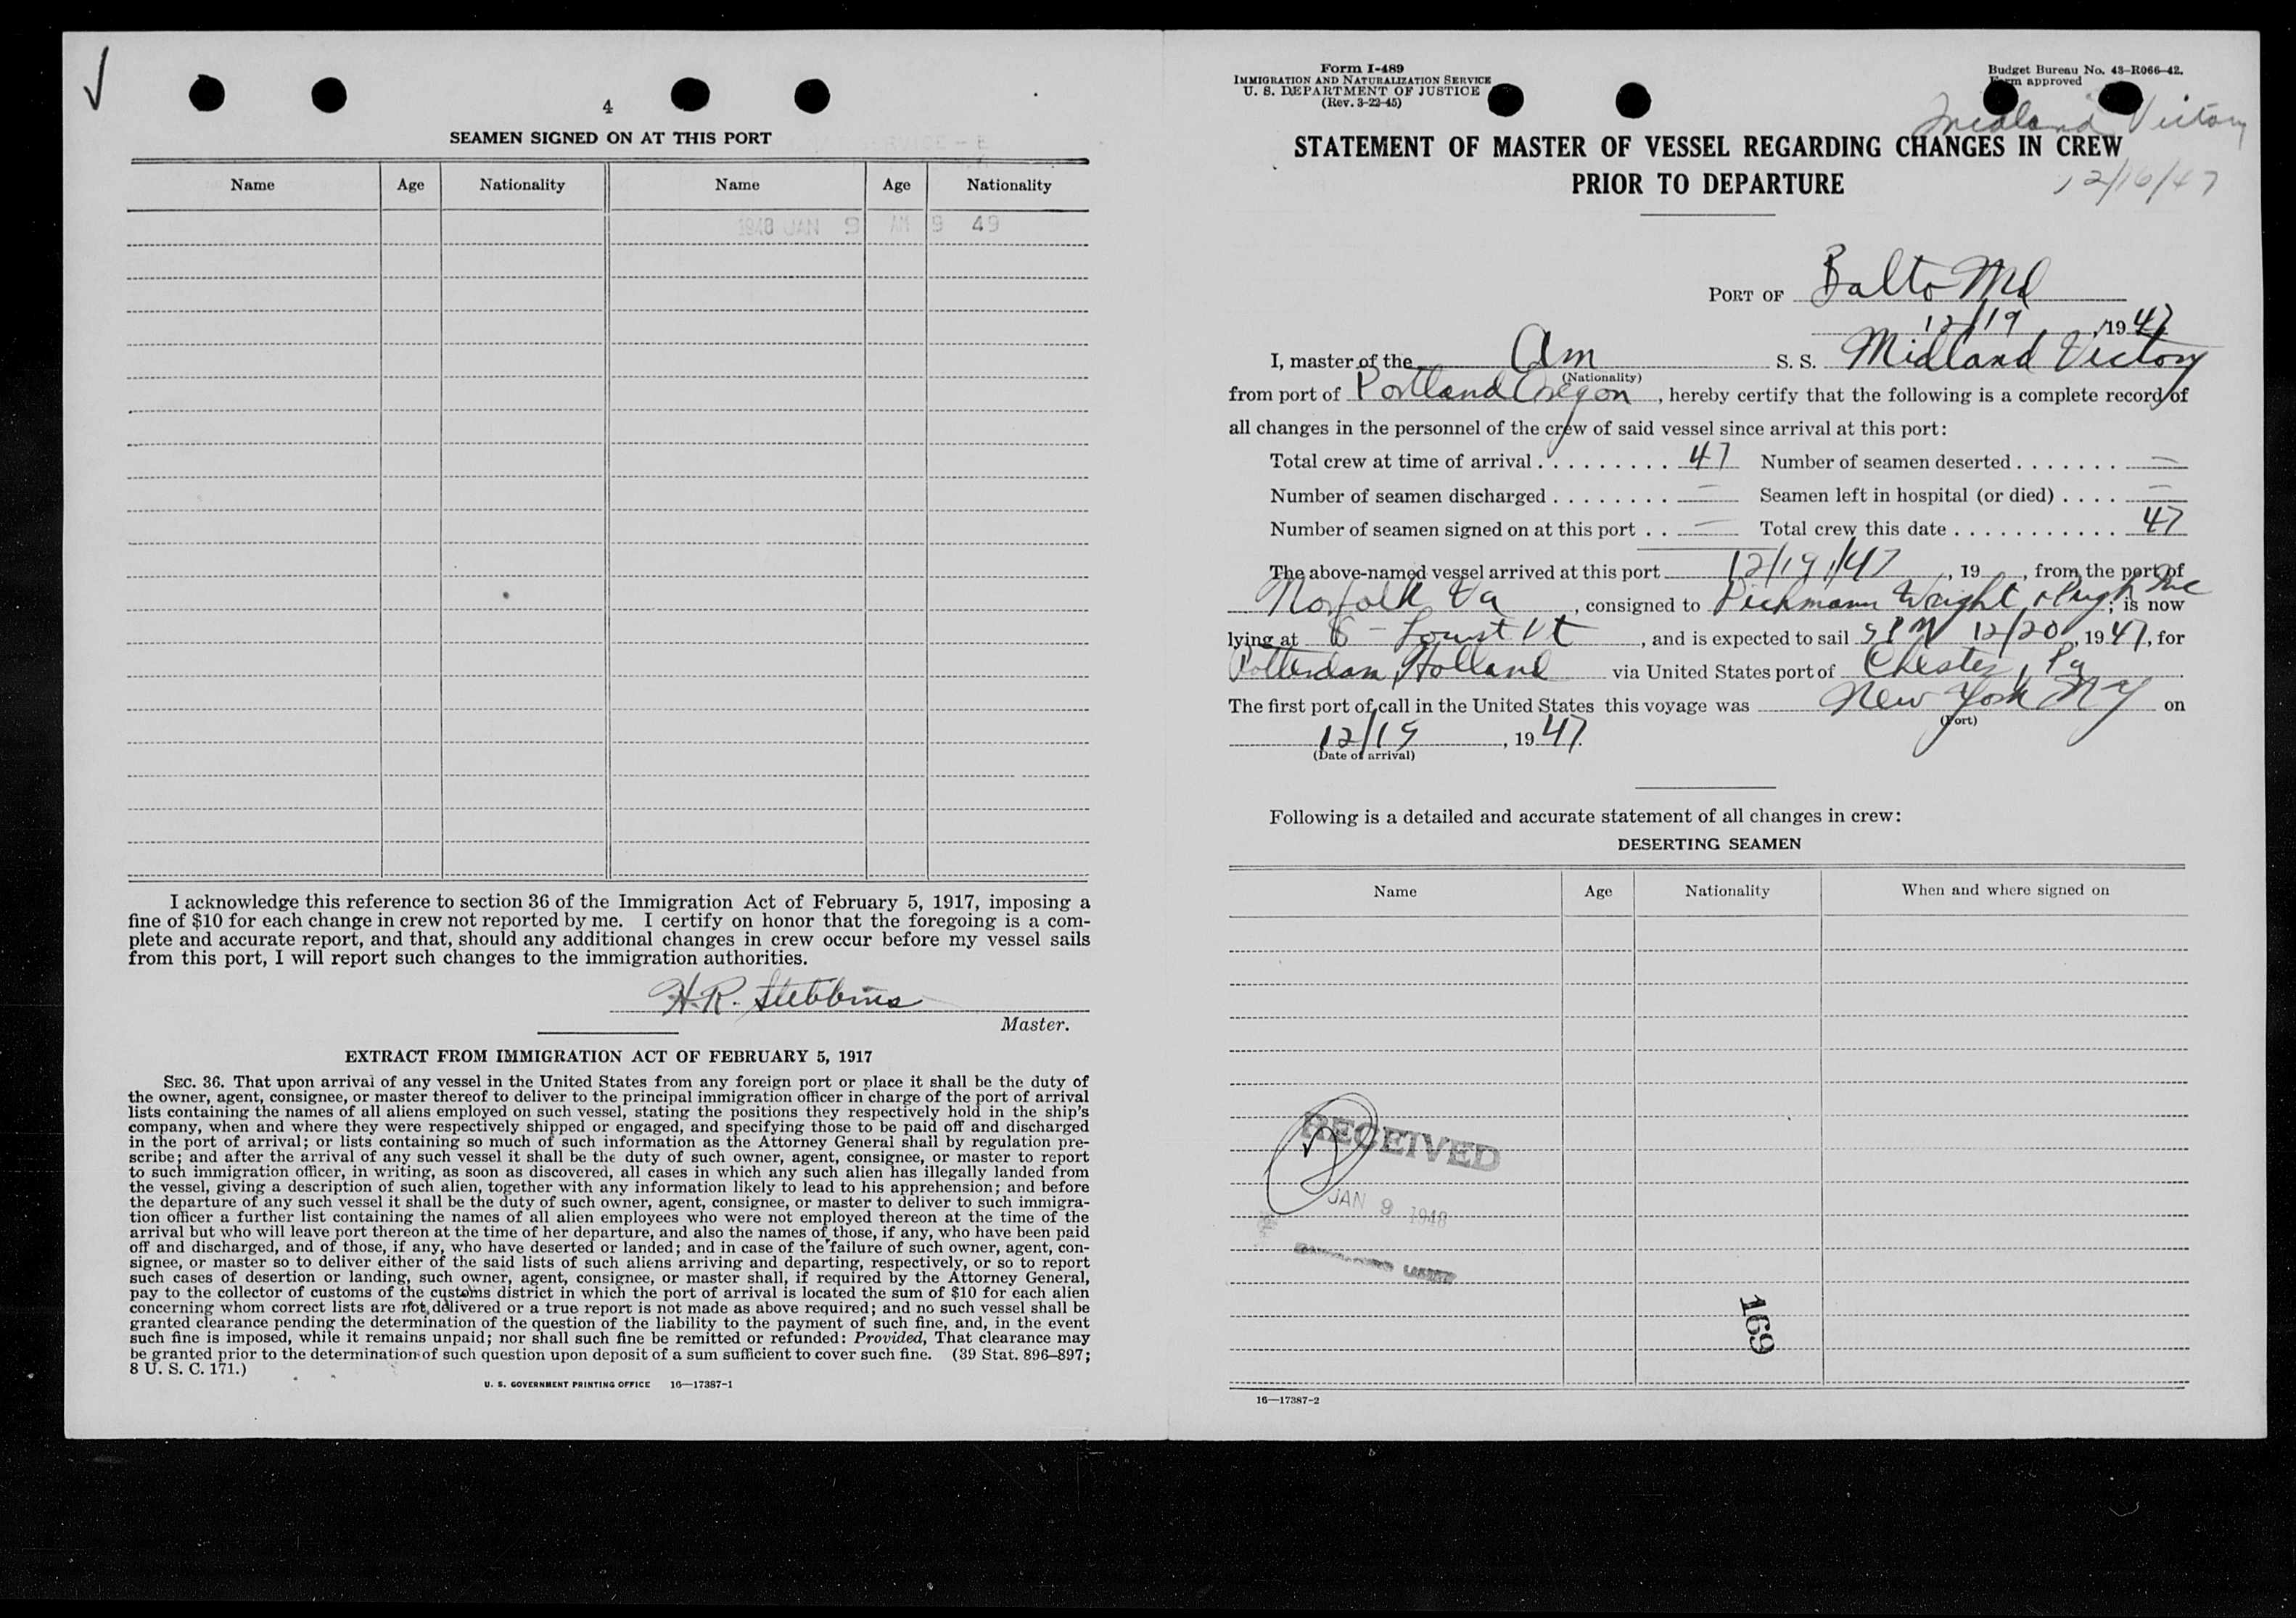 4
SEAMEN SIGNED ON AT THIS PORT
Name Age Nationality Name Age Nationality
1948 JAN 9 AM 9 49
I acknowledge this reference to section 36 of the Immigration Act of February 5, 1917, imposing a
fine of $10 for each change in crew not reported by me. I certify on honor that the foregoing is a com-
plete and accurate report, and that, should any additional changes in crew occur before my vessel sails
from this port, I will report such changes to the immigration authorities.
H.R. Stebbins
Master.
EXTRACT FROM IMMIGRATION ACT OF FEBRUARY 5, 1917
SEC. 36. That upon arrival of any vessel in the United States from any foreign port or place it shall be the duty of
the owner, agent, consignee, or master thereof to deliver to the principal immigration officer in charge of the port of arrival
lists containing the names of all aliens employed on such vessel, stating the positions they respectively hold in the ship's
company, when and where they were respectively shipped or engaged, and specifying those to be paid off and discharged
in the port of arrival; or lists containing so much of such information as the Attorney General shall by regulation pre-
scribe; and after the arrival of any such vessel it shall be the duty of such owner, agent, consignee, or master to report
to such immigration officer, in writing, as soon as discovered, all cases in which any such alien has illegally landed from
the vessel, giving a description of such alien, together with any information likely to lead to his apprehension; and before
the departure of any such vessel it shall be the duty of such owner, agent, consignee, or master to deliver to such immigra-
tion officer a further list containing the names of all alien employees who were not employed thereon at the time of the
arrival but who will leave port thereon at the time of her departure, and also the names of those, if any, who have been paid
off and discharged, and of those, if any, who have deserted or landed; and in case of the failure of such owner, agent, con-
signee, or master so to deliver either of the said lists of such aliens arriving and departing, respectively, or so to report
such cases of desertion or landing, such owner, agent, consignee, or master shall, if required by the Attorney General,
pay to the collector of customs of the customs district in which the port of arrival is located the sum of $10 for each alien
concerning whom correct lists are not delivered or a true report is not made as above required; and no such vessel shall be
granted clearance pending the determination of the question of the liability to the payment of such fine, and, in the event
such fine is imposed, while it remains unpaid; nor shall such fine be remitted or refunded: Provided, That clearance may
be granted prior to the determination of such question upon deposit of a sum sufficient to cover such fine. (39 Stat. 896–897;
8 U. S. C. 171.)
U. S. GOVERNMENT PRINTING OFFICE 16—17387-1
Form I-489
IMMIGRATION AND NATURALIZATION SERVICE
U. S. DEPARTMENT OF JUSTICE
(Rev. 3-22-45)
Budget Bureau No. 43-R066-42.
Form approved
Midland Victory
12/16/47
STATEMENT OF MASTER OF VESSEL REGARDING CHANGES IN CREW
PRIOR TO DEPARTURE
PORT OF Balto Md
12/19, 1947
I, master of the Am S. S. Midland Victory
(Nationality)
from port of Portland Oregon, hereby certify that the following is a complete record of
all changes in the personnel of the crew of said vessel since arrival at this port:
Total crew at time of arrival 47 Number of seamen deserted —
Number of seamen discharged — Seamen left in hospital (or died) —
Number of seamen signed on at this port — Total crew this date 47
The above-named vessel arrived at this port 12/19/47, 19 , from the port of
Norfolk Va, consigned to Wright & Pugh Inc; is now
lying at Locust Pt, and is expected to sail 5 PM 12/20, 1947, for
Rotterdam, Holland via United States port of Chester, Pa
The first port of call in the United States this voyage was New York NY on
(Port)
12/15, 1947.
(Date of arrival)
Following is a detailed and accurate statement of all changes in crew:
DESERTING SEAMEN
Name Age Nationality When and where signed on
RECEIVED
JAN 9 1948
169
16—17387-2